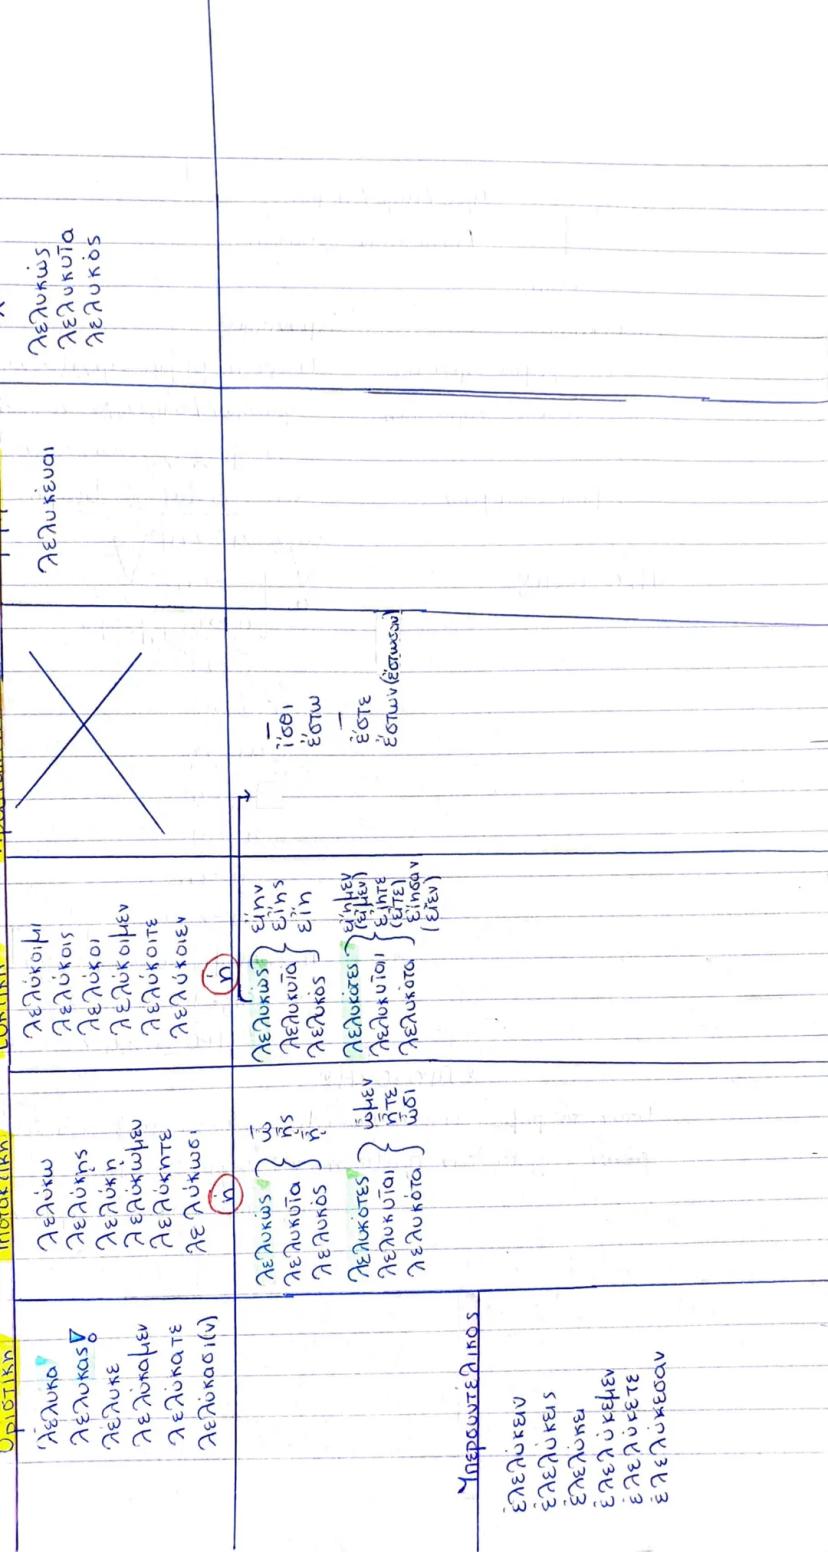 Οριστική
λέλυκα
λέλυκας
λέλυκε
λελύκαμεν
λελύκατε
λελύκασι(ν)
Υπερσυντέλικος
ἐλελύκειν
ἐλελύκεις
ἐλελύκει
ἐλελύκεμεν
ἐλελύκετε
ἐλελύκεσαν
Υποτακτική
λελύκω
λελύκῃς
λελύκῃ
λελύκωμεν
λελύκητε
λελύκωσι
ή
λελυκώς ὦ
λελυκυῖα ᾖς
λελυκός ᾖ
λελυκότες ὦμεν
λελυκυῖαι ἦτε
λελυκότα ὦσι
Ευκτική
λελύκοιμι
λελύκοις
λελύκοι
λελύκοιμεν
λελύκοιτε
λελύκοιεν
ή
λελυκώς εἴην
λελυκυῖα εἴης
λελυκός εἴη
λελυκότες εἴημεν
(εἶμεν)
λελυκυῖαι εἴητε
(εἶτε)
λελυκότα εἴησαν
(εἶεν)
—
ἴσθι
ἔστω
—
ἔστε
ἔστων (ἔστωσαν)
λελυκέναι
λελυκώς
λελυκυῖα
λελυκός